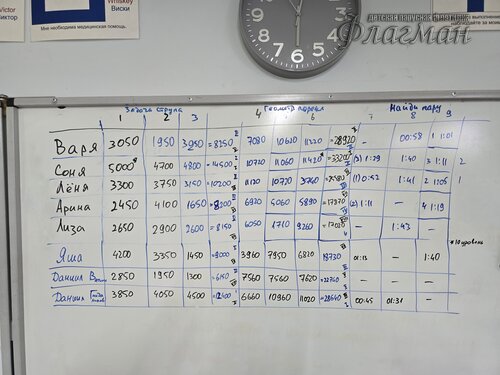 Victor
Виктор
Whiskey
Виски
Мне необходима медицинская помощь.
детская парусная
Флагман
Задача стула Геометр Найди пару
1 2 3 4 6 7 8 9
Варя 3050 1950 3250 =8250 7080 10620 11220 =28920 – 00:58 1 1:01
Соня 5000 4700 4800 =14500 10720 11060 11420 =33200 (3) 1:29 1:40 3 1:11 2
Лёня 3300 3750 3150 =10200 11120 10720 3760 (1) 0:52 1:41 2 1:05 1
Арина 2450 4100 1650 =8200 6920 5060 5890 =17870 (2) 1:11 – 4 1:19
Лиза 2650 2900 2600 =8150 6050 1710 9260 =17020 – 1:43 –
*10 уровень
Яша 4200 3350 1450 =9000 3960 7950 6820 18730 01:13 – 1:40
Даниил 2850 1950 1300 =6150 7560 7560 7620 =22740 – – –
Даниил 3850 4050 4500 =12400 6660 10960 11020 =28640 00:45 01:31 –